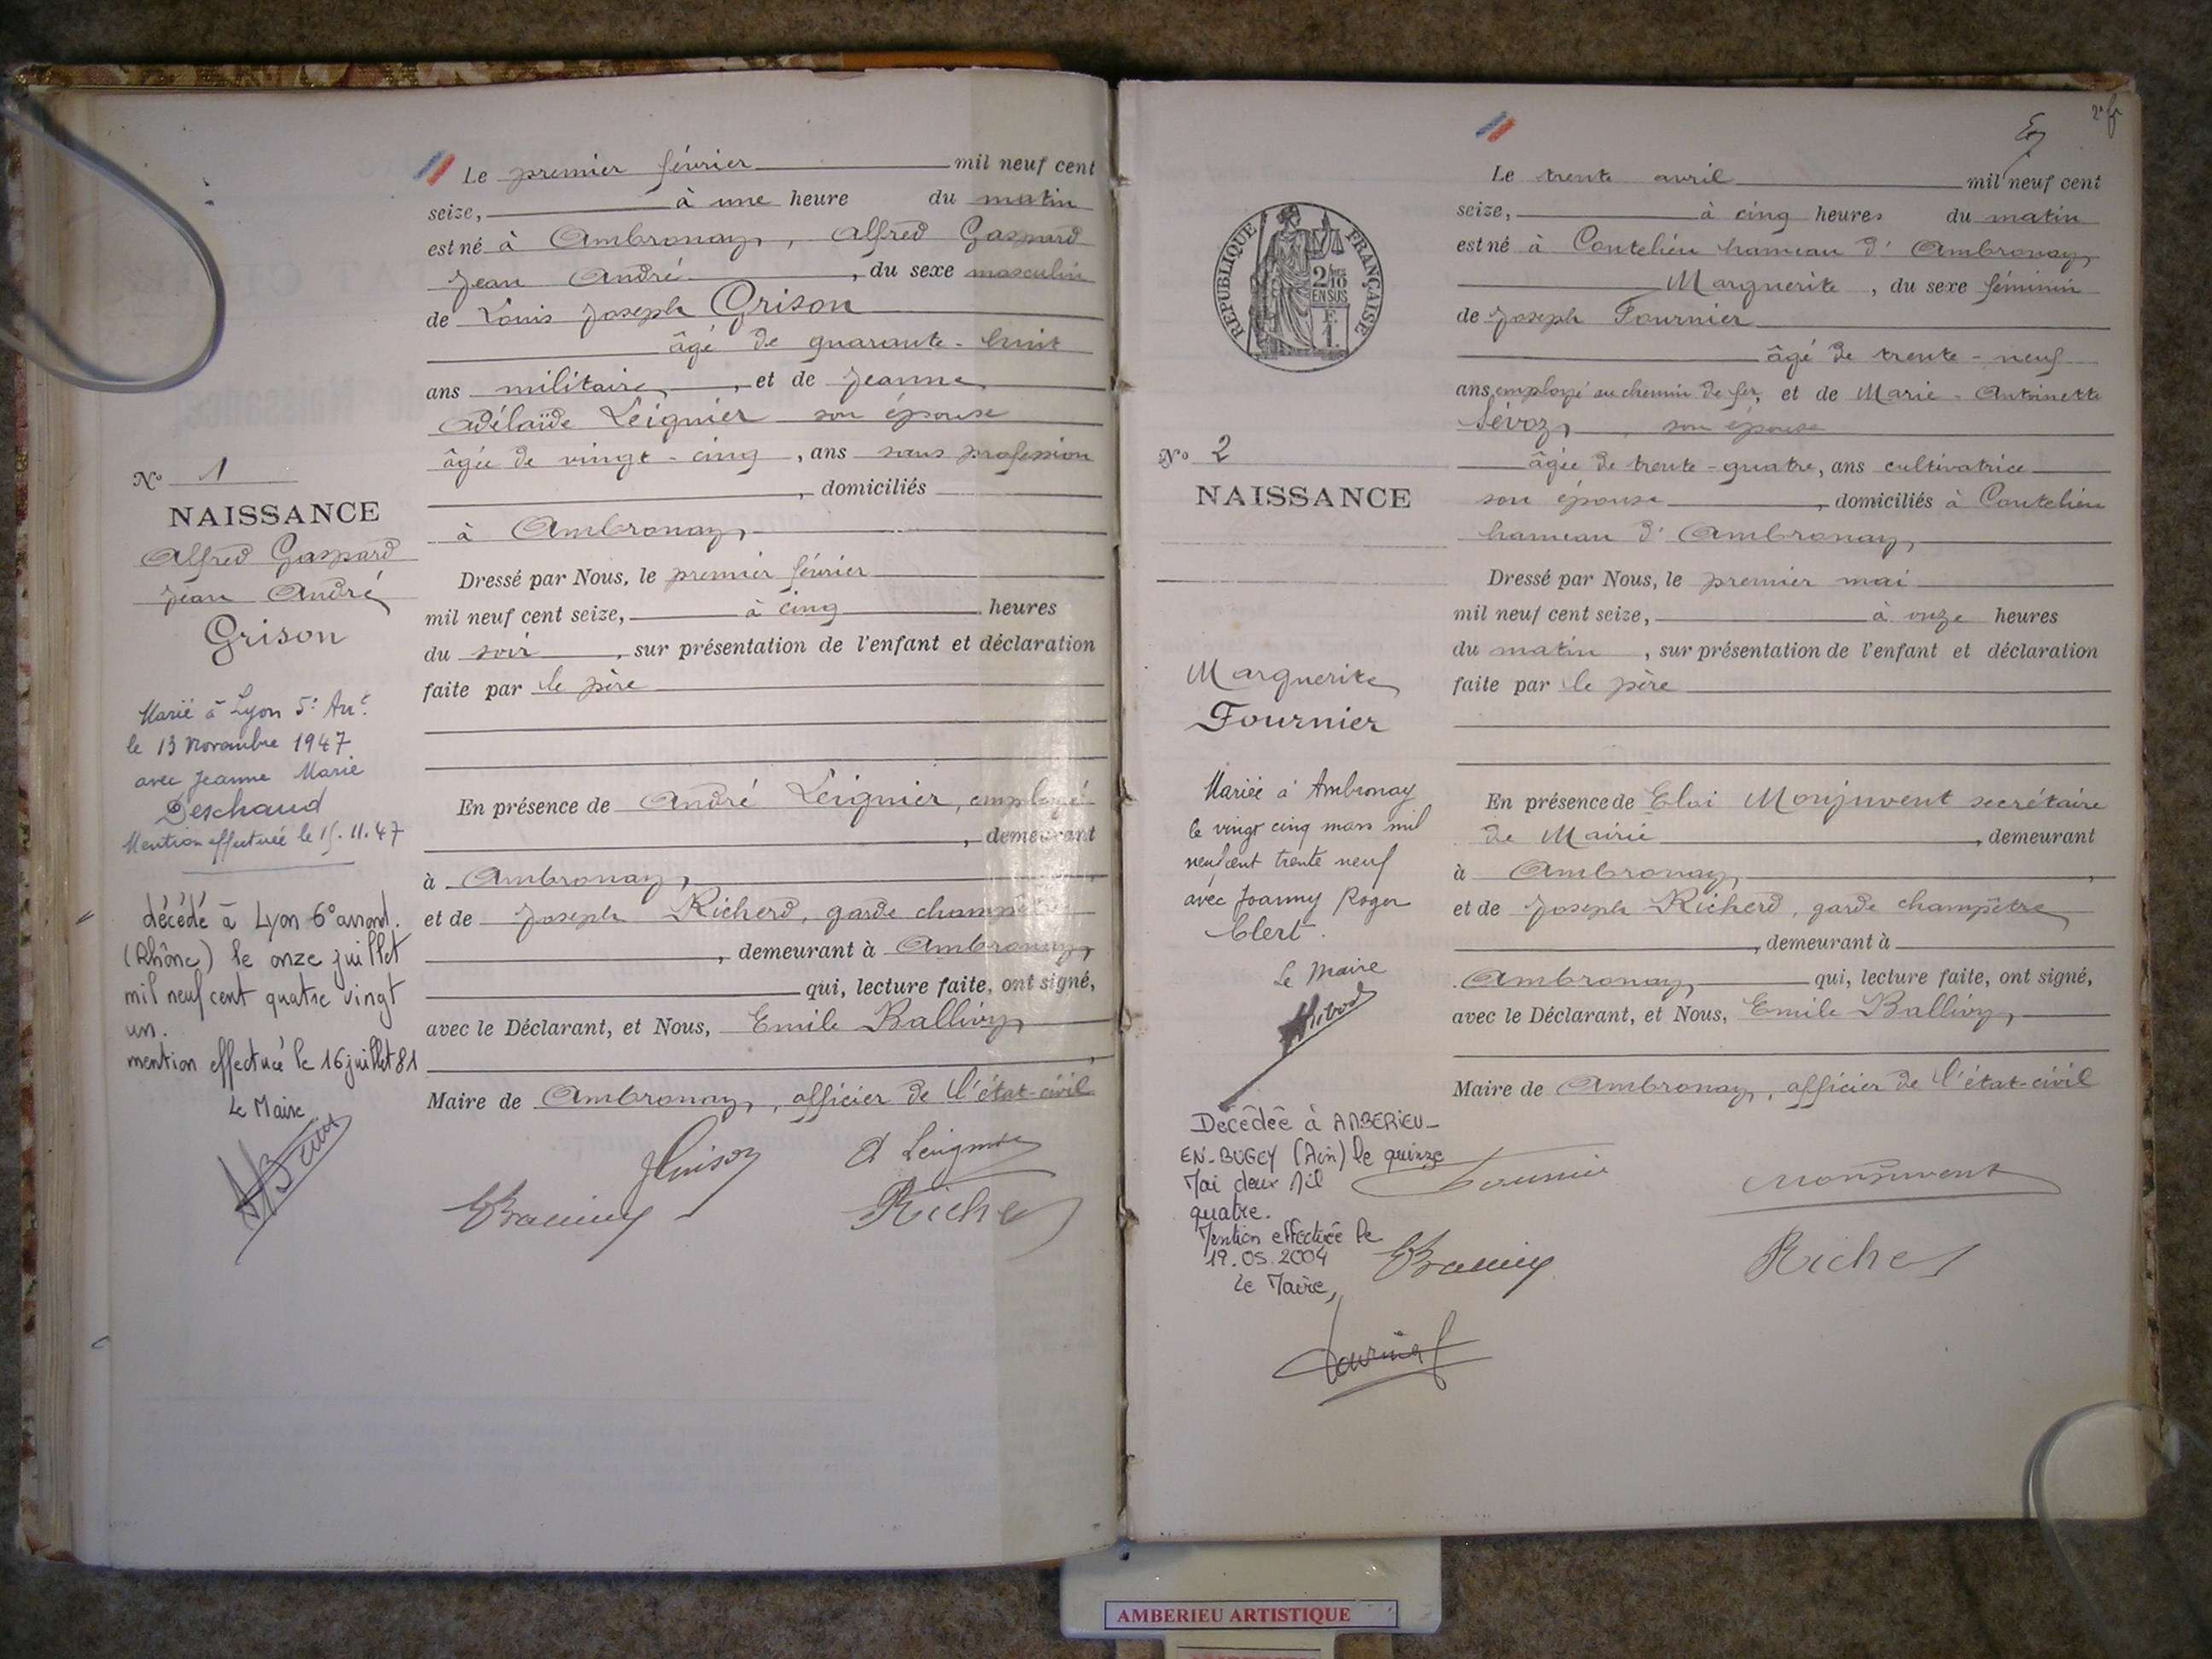 Le premier février mil neuf cent
seize, à une heure du matin
est né à Ambronay, Alfred Gaspard
Jean André, du sexe masculin
de Louis Joseph Grison
âgé de quarante-huit
ans militaire, et de Jeanne
Adélaïde Leignier son épouse
âgée de vingt-cinq, ans sans profession
, domiciliés
à Ambronay,
Dressé par Nous, le premier février
mil neuf cent seize, à cinq heures
du soir, sur présentation de l'enfant et déclaration
faite par le père
En présence de André Leignier, employé
, demeurant
à Ambronay,
et de Joseph Richerd, garde champêtre
, demeurant à Ambronay,
qui, lecture faite, ont signé,
avec le Déclarant, et Nous, Emile Ballivy,
Maire de Ambronay, officier de l'état-civil
No 1
NAISSANCE
Alfred Gaspard
Jean André
Grison
Marié à Lyon 5e Arrt
le 13 Novembre 1947
avec Jeanne Marie
Deschaud
Mention effectuée le 15.11.47
décédé à Lyon 6° arrond.
(Rhône) le onze juillet
mil neuf cent quatre vingt
un.
mention effectuée le 16 juillet 81
Le Maire
A Leignier
Richerd
2e f
REPUBLIQUE FRANÇAISE
2/10
EN SUS
F.
1.
Le trente avril mil neuf cent
seize, à cinq heures du matin
est né à Coutelieu hameau d'Ambronay,
Marguerite, du sexe féminin
de Joseph Fournier
âgé de trente-neuf
ans, employé au chemin de fer, et de Marie-Antoinette
Sévoz, son épouse
âgée de trente-quatre, ans cultivatrice
son épouse, domiciliés à Coutelieu
hameau d'Ambronay,
Dressé par Nous, le premier mai
mil neuf cent seize, à onze heures
du matin, sur présentation de l'enfant et déclaration
faite par le père
En présence de Eloi Monjuvent secrétaire
de Mairie, demeurant
à Ambronay,
et de Joseph Richerd, garde champêtre
, demeurant à
Ambronay, qui, lecture faite, ont signé,
avec le Déclarant, et Nous, Emile Ballivy,
Maire de Ambronay, officier de l'état-civil
No 2
NAISSANCE
Marguerite
Fournier
Mariée à Ambronay
le vingt cinq mars mil
neuf cent trente neuf
avec Joanny Roger
Clert.
Le Maire
Décédée à AMBERIEU-
EN-BUGEY (Ain) le quinze
Mai deux Mil
quatre.
Mention effectuée le
19.05.2004
Le Maire,
Fournier
Monjuvent
Richerd
AMBERIEU ARTISTIQUE